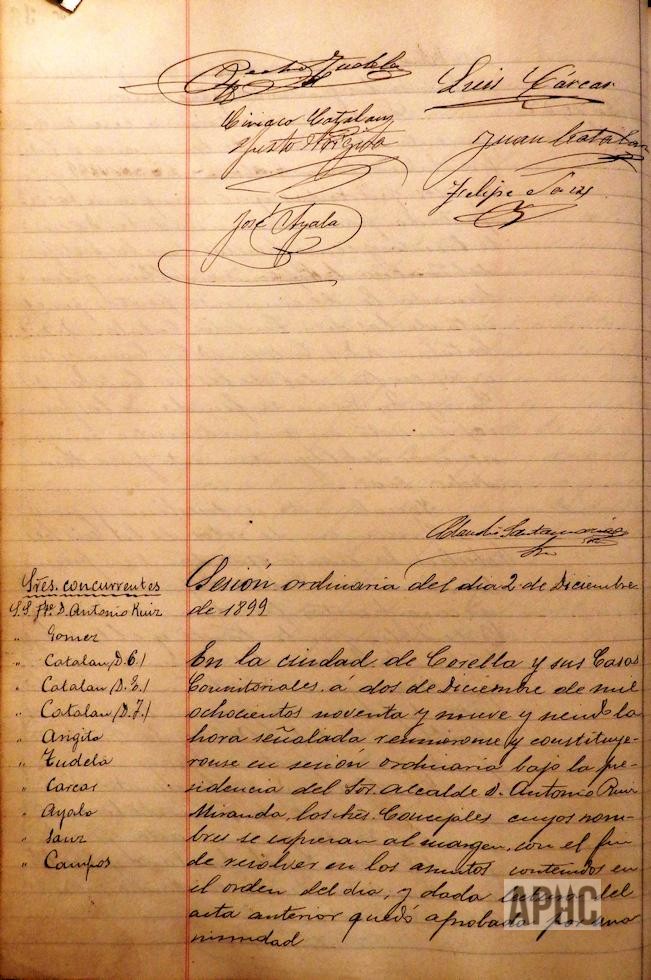 Pedro Tudela
Luis Cárcar
Ciriaco Catalan
Justo
Juan Catalan
Felipe Sanz
José Ayala
Claudio Santamaría
Sres. concurrentes
S.S. Pte. D. Antonio Ruiz
" Gomez
" Catalan (D.C.)
" Catalan (D.E.)
" Catalan (D.J.)
" Arigita
" Tudela
" Carcar
" Ayala
" Sanz
" Campos
Sesión ordinaria del dia 2 de Diciembre
de 1899
En la ciudad de Corella y sus Casas
Consitoriales á dos de Diciembre de mil
ochocientos noventa y nueve y siendo la
hora señalada reunieronse y constituye-
ronse en sesión ordinaria bajo la pre-
sidencia del Sor. Alcalde D. Antonio Ruiz
Miranda, los Sres. Concejales cuyos nom-
bres se expresan al margen, con el fin
de resolver en los asuntos contenidos en
el orden del dia, y dada lectura del
acta anterior quedó aprobada por una
nimidad
APHC